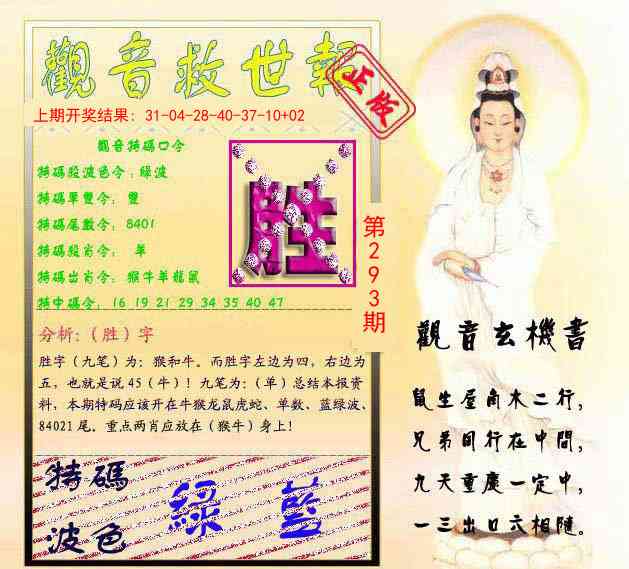 觀音救世報
正版
上期开奖结果：31-04-28-40-37-10+02
觀音特碼口令
特碼段波色令：綠波
特碼單雙令：雙
特碼尾數令：8401
特碼段肖令：單
特碼出肖令：猴牛羊龍鼠
特中碼令：16 19 21 29 34 35 40 47
胜
第293期
分析:（胜）字
胜字（九笔）为：猴和牛。而胜字左边为四，右边为
五，也就是说45（牛）！九笔为:（单）总结本报资
料，本期特码应该开在牛猴龙鼠虎蛇、单数、蓝绿波、
84021尾。重点两肖应放在（猴牛）身上！
特碼
波色
綠 藍
觀音玄機書
鼠生屋角木二行，
兄弟同行在中間，
九天重慶一定中，
一三出口六相隨。